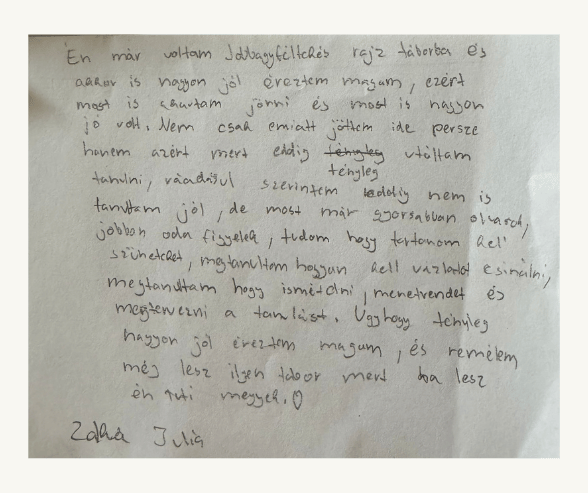 Én már voltam Jobbagyféltekés rajz táborba és
akkor is nagyon jól éreztem magam, ezért
most is akartam jönni és most is nagyon
jó volt. Nem csak emiatt jöttem ide persze
hanem azért mert eddig tényleg utáltam
tényleg
tanulni, ráadásul szerintem eddig nem is
tanultam jól, de most már gyorsabban olvasok,
jobban oda figyelek, tudom hogy tartanom kell
szüneteket, megtanultam hogyan kell vázlatot csinálni,
megtanultam hogy ismételni, menetrendet és
megtervezni a tanulást. Úgyhogy tényleg
nagyon jól éreztem magam, és remélem
még lesz ilyen tábor mert ha lesz
én tuti megyek.
Julia